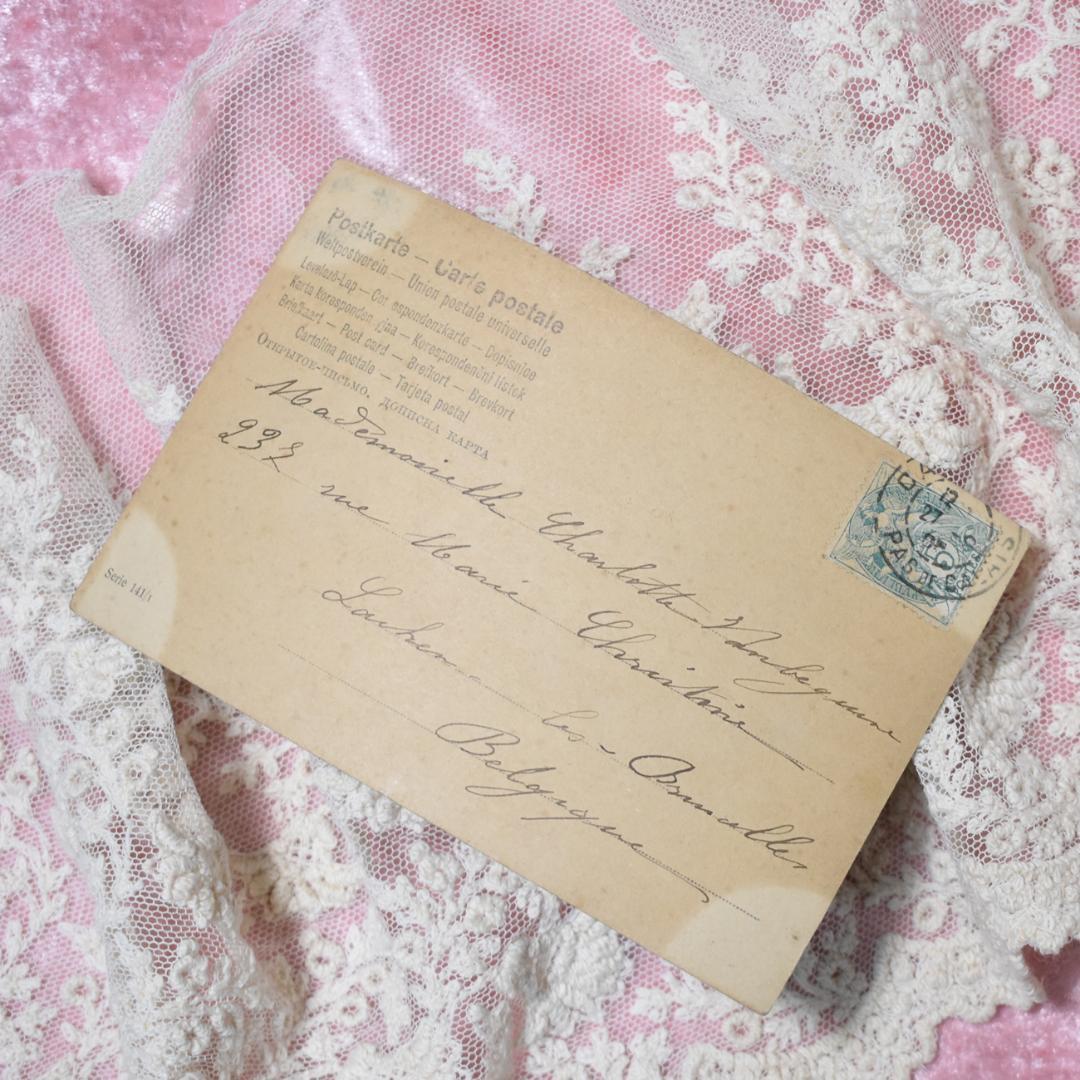 Postkarte — Carte postale
Weltpostverein — Union postale universelle
Levelező-Lap — Cor espondenzkarte — Dopisnice
Karta korespondencyjna — Korespondenční lístek
Briefkaart — Post card — Brefkort — Brevkort
Cartolina postale — Tarjeta postal
Открытое-письмо. дописна карта
Mademoiselle Charlotte
rue Marie Christine
Laeken - les - Bruxelles
Belgique
Serie 141/1